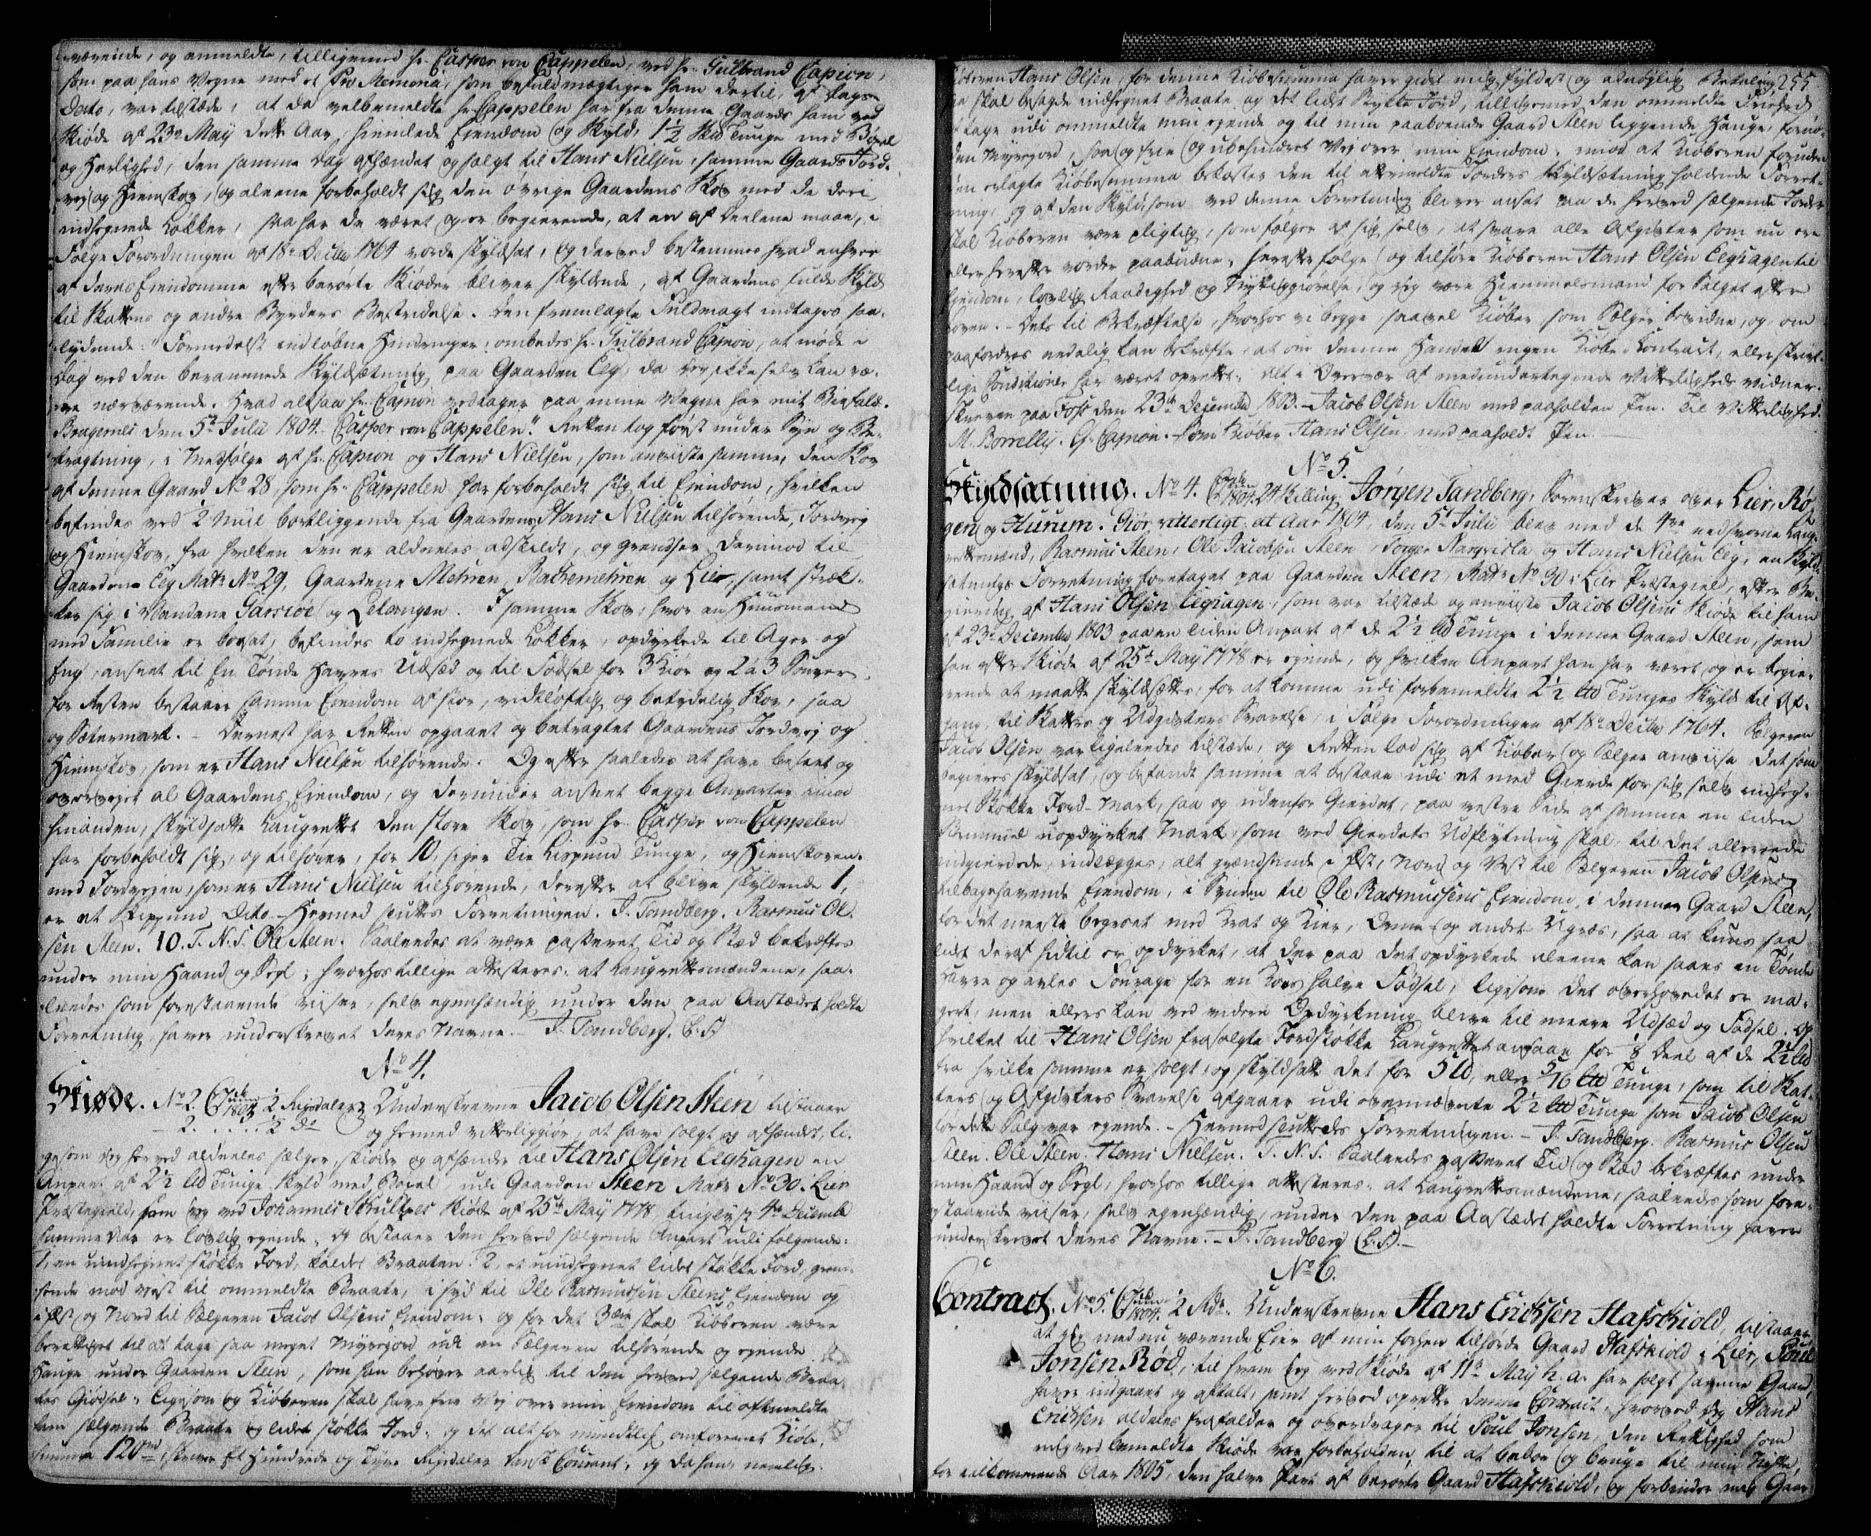 værende, og anmeldte, tilligemed hr. Casper von Cappelen, ved hr. Gulbrand Capion,
som paa hans Vegne med et Pro Memoria, som befuldmægtiger ham dertil, af Dags
Dato, var tilstæde, at da velbemeldte hr. Cappelen har fra denne Gaards ham ved
Skiøde af 23de May dette Aar, hiemlede Ejendom og Skyld, 1½ Skd Tunge med Böxel
og Herlighed, den samme Dag afhændet og solgt til Hans Nielsen, samme Gaards Jord-
vej og Hiemskov, og alene forbeholdt sig den øvrige Gaardens Skov med de deri
indhegnede Løkker, saa har de været og er begierende, at en af Deelene maae, i
Følge Forordningen af 18de Decbr 1764 vorde skyldsat, og derved bestemmes hvad enhver
af deres Ejendomme efter berørte Skiøder bliver skyldende, af Gaardens fulde Skyld
til Skatters og andre Byrders Bestridelse. Den fremlagte Fuldmagt indtages saa-
lydende: Formedelst indløbne Hindringer, ombedes hr. Gulbrand Capion, at møde i
Dag ved den berammede Skyldsætning paa Gaarden Eeg, da jeg ikke selv kan væ-
re nærværende. Hvad altsaa hr. Capion vedtager paa mine Vegne har mit Bifald.
Bragernes den 5te Julii 1804. Casper von Cappelen." Retten tog først under Syn og Be-
tragtning, i Medfølge af hr. Capion og Hans Nielsen, som anviiste samme, den Skov
af denne Gaard No 28, som hr. Cappelen har forbeholdt sig til Ejendom, hvilken
befindes ved 2 Miil bortliggende fra Gaardens Hans Nielsen tilhørende, Jordvej
og Hiemskov, fra hvilken den er aldeeles adskildt, og grendser derimod til
Gaardene Eeg Matr No 29, Gaardene Mehren, Rathemehren og Lier, samt stræk-
ker sig i Vandene Garsiøe og Letangen. I samme Skov, hvor en Huusmand
med Familie er boesat, befindes to indhegnede Løkker, opdyrkede til Ager og
Eng, anseet til En Tønde Havres Udsæd og til Fødsel for 3 Kiør og 2 a 3 Souver.
For Resten bestaaer samme Ejendom af stor, vidtløftig og betydelig Skov, saa
og Sætermark. - Dernest har Retten opgaaet og betragtet Gaardens Jordvej og
Hiemskov, som er Hans Nielsen tilhørende. Og efter saaledes at have beseet og
overvejet al Gaardens Ejendom, og derunder anseet begge Anparter imod
hinanden, skyldsatte Laugrettet den store Skov, som hr. Casper von Cappelen
har forbeholdt sig, og tilhører, for 10, siger Tie Lispund Tunge, og Hiemskoven
med Jordvejen, som er Hans Nielsen tilhørende, derefter at blive skyldende 1,
er et Skippund Dito. - Hermed sluttes Forretningen. J. Tandberg. Rasmus Ol-
sen Steen. 10. T. N. S. Ole Steen. Saaledes at være passeret, Tid og Stæd bekræftes
under min Haand og Segl; hvorhos tillige attesteres: at Laugrettesmændene, saa-
ledes som forestaaende viiser, selv egenhændig under den paa Aastædet holdte
Forretning, haver underskrevet deres Navne. J. Tandberg. (L.S.)
No 4.
Skiøde. No 2. 1804. 2 Rigsdaler Underskrevne Jacob Olsen Steen tilstaaer
- 2. . . . . 2 do og hermed vitterliggiør, at have solgt og afhændet, li-
gesom jeg herved aldeeles sælger, skiøder og afhænder til Hans Olsen Eeghagen en
Anpart af 2½ Ld Tunge Skyld med Boxel udi Gaarden Steen Matr No 30 i Lier
Præstegield, som jeg ved Johannes Skulstes Skiøde af 25de May 1778 tinglyst 4de Decembr
samme Aar er lovlig ejende, og bestaaer den herved sælgende Anpart udi følgende:
1, en indhegnet støkke Jord, kaldet Braaten. 2, et uindhegnet lidet støkke Jord, græn-
sende mod Vest til ommeldte Braate, i Syd til Ole Rasmussen Steens Ejendom og
i Øst og Nord til Sælgeren Jacob Olsens Ejendom, og for det 3die skal Kiøberen være
berettiget til at tage saa meget Myrejord udi en Sælgeren tilhørende og ejende
Hauge under Gaarden Steen, som han behøver aarlig til den herved sælgende Braa-
tes Giødsel. Ligesom og Kiøberen skal have frie Vej over min Ejendom til oftmeldte
ham sælgende Braate og lidet støkke Jord, og det alt for mundtlig omforenet Kiøbe-
summa 120 Rd, skriver Et Hundrede og Tyve Rigsdaler dansk Courant, og da han nemlig
255
Kiøberen Hans Olsen, for denne Kiøbesumma haver giort mig fyldest og nøjagtig Betaling,
saa skal besagde indhegnet Braate og det lidet Stykke Jord, tilligemed den ommeldte Friehed
at tage udi ommeldte min ejende og til min paaboende Gaard Steen liggende Hauge, fornø-
den Myrejord, saa og frie og ubehindret Vej over min Ejendom, mod at Kiøberen foruden
den erlagte Kiøbesumma bekoster den til akymeldte Jorders Skyldsætning holdende Forret-
ning, og af den Skyld, som ved denne Forretning bliver ansat paa de herved sælgende Jorder
skal Kiøberen være pligtig, som følger af sig selv, at svare alle Afgivter som nu ere
eller herefter vorder paabudne, herefter følge og tilhøre Kiøberen Hans Olsen Eeghagen til
Ejendom, lovlig Raadighed og Nyttiggiørelse, og jeg være Hiemmelsmand for Salget efter
Loven. Dets til Bekræftelse, hvorhos vi begge saavel Kiøber som Sælger bevidne, og, om
paafordres eedelig kan bekræfte, at om denne Handel ingen Kiøbe-Contract, eller skrivt-
lige Conditioner har været oprettet, alt i Overvær af medundertegnede Vitterligheds Vidner.
Skreven paa Foss den 23de December 1803. - Jacob Olsen Steen med paaholden Pen. Til Vitterlighed:
M. Borrelly. G. Capion. Som Kiøber Hans Olsen, med paaholdt Pen.
No 5.
Skyldsætning. No 4. 1804. 24 Skilling. Jørgen Tandberg, Sorenskriver over Lier, Rø-
gen og Hurum. Giør vitterligt, at Aar 1804, den 5te Julii blev med de 4re nedskrevne Laug-
rettesmænd, Rasmus Steen, Ole Jacobsen Steen, Torger Nargvisla og Hans Nielsen Eeg, en Skyld-
sætnings Forretning foretaget paa Gaarden Steen, Matr No 30 i Lier Præstegield, efter Be-
giering af Hans Olsen Eeghagen, som var tilstæde og anviiste Jacob Olsens Skiøde til ham
af 23de December 1803 paa en liden Anpart af de 2½ Ld Tunge i denne Gaard Steen, som
han efter Skiøde af 25de May 1778 er ejende, og hvilken Anpart han har været og er begie-
rende at maatte skyldsættes, for at komme udi forbemeldte 2½ Ld Tunges Skyld til Af-
gang, til Skatters og Udgivters Svarelse, i Følge Forordningen af 18de Decbr 1764. Sælgeren
Jacob Olsen var ligeleedes tilstæde, og Retten lod sig af Kiøber og Sælger anviise det som
begieres skyldsat, og befandt samme at bestaae udi et med Gierde for sig selv indheg-
net Støkke Jord-Mark, saa og udenfor Gierdet, paa vestre Side af samme en liden
Strimmel uopdyrket Mark, som ved Gierdets Udflytning skal til det allerede
indgierdede, indlægges, alt grændsende i Øst, Nord og Vest til Sælgeren Jacob Olsens
tilbagehavende Ejendom, i Synden til Ole Rasmussens Ejendom, i denne Gaard Steen,
for det meeste begroet med Krat og Kier, Brem og andet Ugræs, saa at kuns saa
lidt deraf hidtil er opdyrket, at der paa det opdyrkede alleene kan saaes en Tønde
Havre og avles Fourage for en Koes halve Fødsel, ligesom det overhovedet er ma-
gert, men ellers kan ved videre Opdyrkning blive til meere Udsæd og Fødsel. Og
hvilket til Hans Olsen frasolgte Jordstøkke Laugrettet ansaae for ⅛ Deel af de 2½ Ld
fra hvilke samme er solgt, og skyldsatte det for 5 Ld, eller 5/16 Ld Tunge, som til Skat-
ters og Afgivters Svarelse afgaaer udi ovennævnte 2½ Ld Tunge som Jacob Olsen
før dette Salg var ejende. - Hermed sluttedes Forretningen. - J. Tandberg. Rasmus Olsen
Steen. Ole Steen. Hans Nielsen. T. N. S. Saaledes passeret Tid og Stæd bekræftes under
min Haand og Segl, hvorhos tillige attesteres: at Laugrettesmændene, saaledes som fore-
staaende viiser, selv egenhændig, under den paa Aastædet holdte Forretning haver
underskrevet deres Navne. - J. Tandberg (L.S.) -
No 6.
Contract. No 5. 1804. 2 Rdr. Underskrevne Hans Ericksen Hafskiold, tilstaaer
at jeg med nu værende Ejer af min forhen tilhørde Gaard Hafskiold i Lier, Poul
Jonsen Rød, til hvem jeg ved Skiøde af 11te May h. a. har solgt samme Gaard,
haver indgaaet og aftalt, samt herved oprettet denne Contract, hvorved jeg Hans
Ericksen aldeles frafalder og overdrager til Poul Jonsen, den Rettighed som
mig ved bemeldte Skiøde var forbeholden, til at beboe og bruge til min Nytte,
for tilkommende Aar 1805, den halve Part af berørte Gaard Hafskiold, og forbinder mig Gaar-